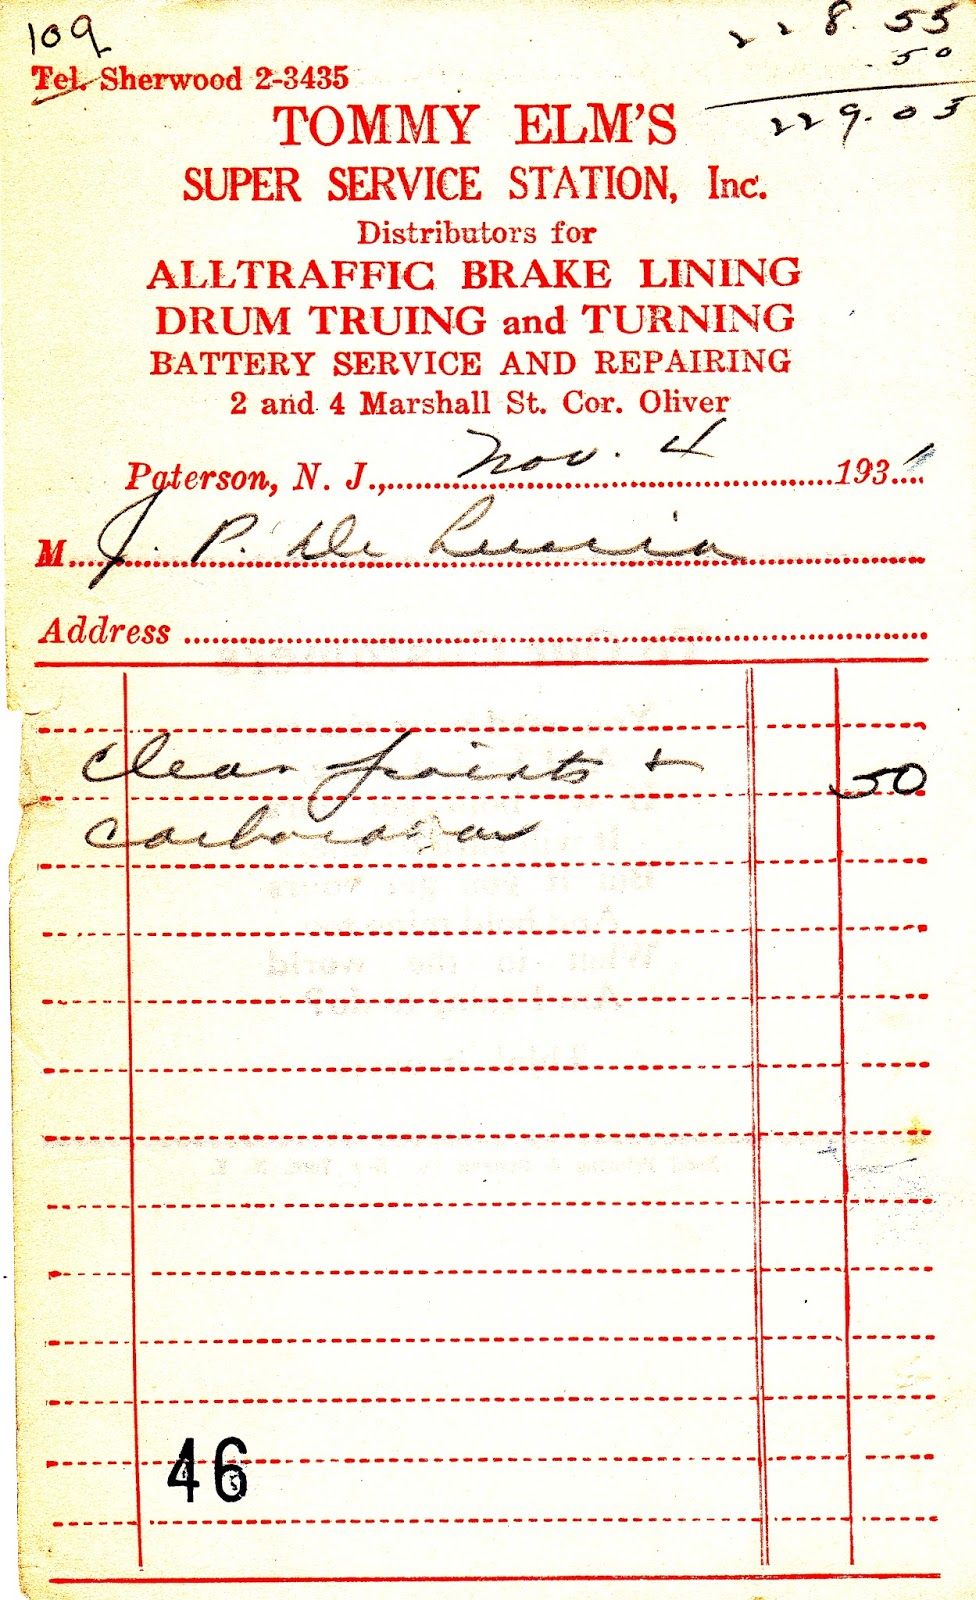 109
228.55
.50
229.05
Tel. Sherwood 2-3435
TOMMY ELM'S
SUPER SERVICE STATION, Inc.
Distributors for
ALLTRAFFIC BRAKE LINING
DRUM TRUING and TURNING
BATTERY SERVICE AND REPAIRING
2 and 4 Marshall St. Cor. Oliver
Paterson, N. J., Nov. 4 1931
M J. P. De Luccia
Address
Clean points + 50
carborator
46